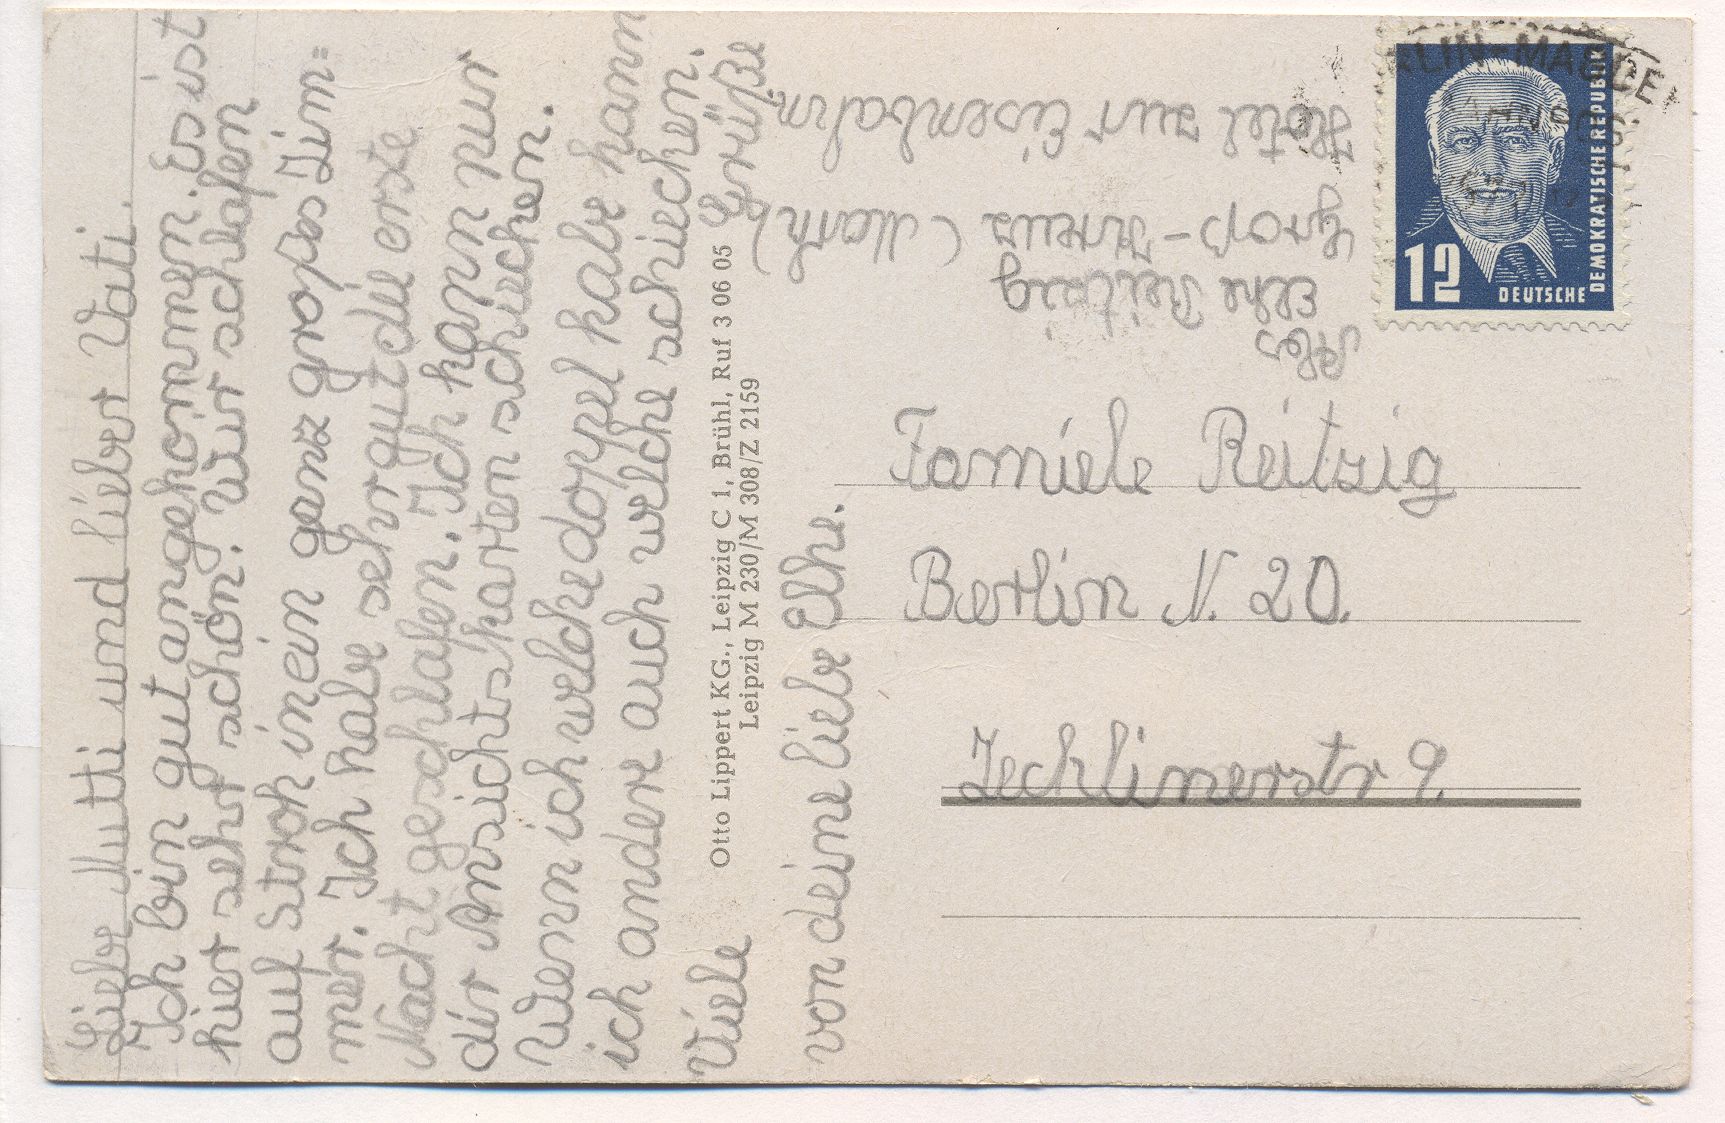 Liebe Mutti und lieber Vati.
Ich bin gut angekommen. Es ist
hier sehr schön. Wir schlafen
auf Stroh in ein ganz großes Zim=
mer. Ich habe sehr gut die erste
Nacht geschlafen. Ich kann nur
dir Ansichtskarten schiecken.
Wenn ich welche doppel habe kann
ich andere auch welche schiecken.
Viele Grüße
von deine liebe Elke.
Otto Lippert KG., Leipzig C 1, Brühl, Ruf 3 06 05
Leipzig M 230/M 308/Z 2159
Abs
Elke Reitzig
Groß-Kreuz (Mark)
Hotel zur Eisenbahn
12
DEUTSCHE
DEMOKRATISCHE REPUBLIK
RLIN-MAGDE
Familele Reitzig
Berlin N. 20.
Zechlinerstr 9.